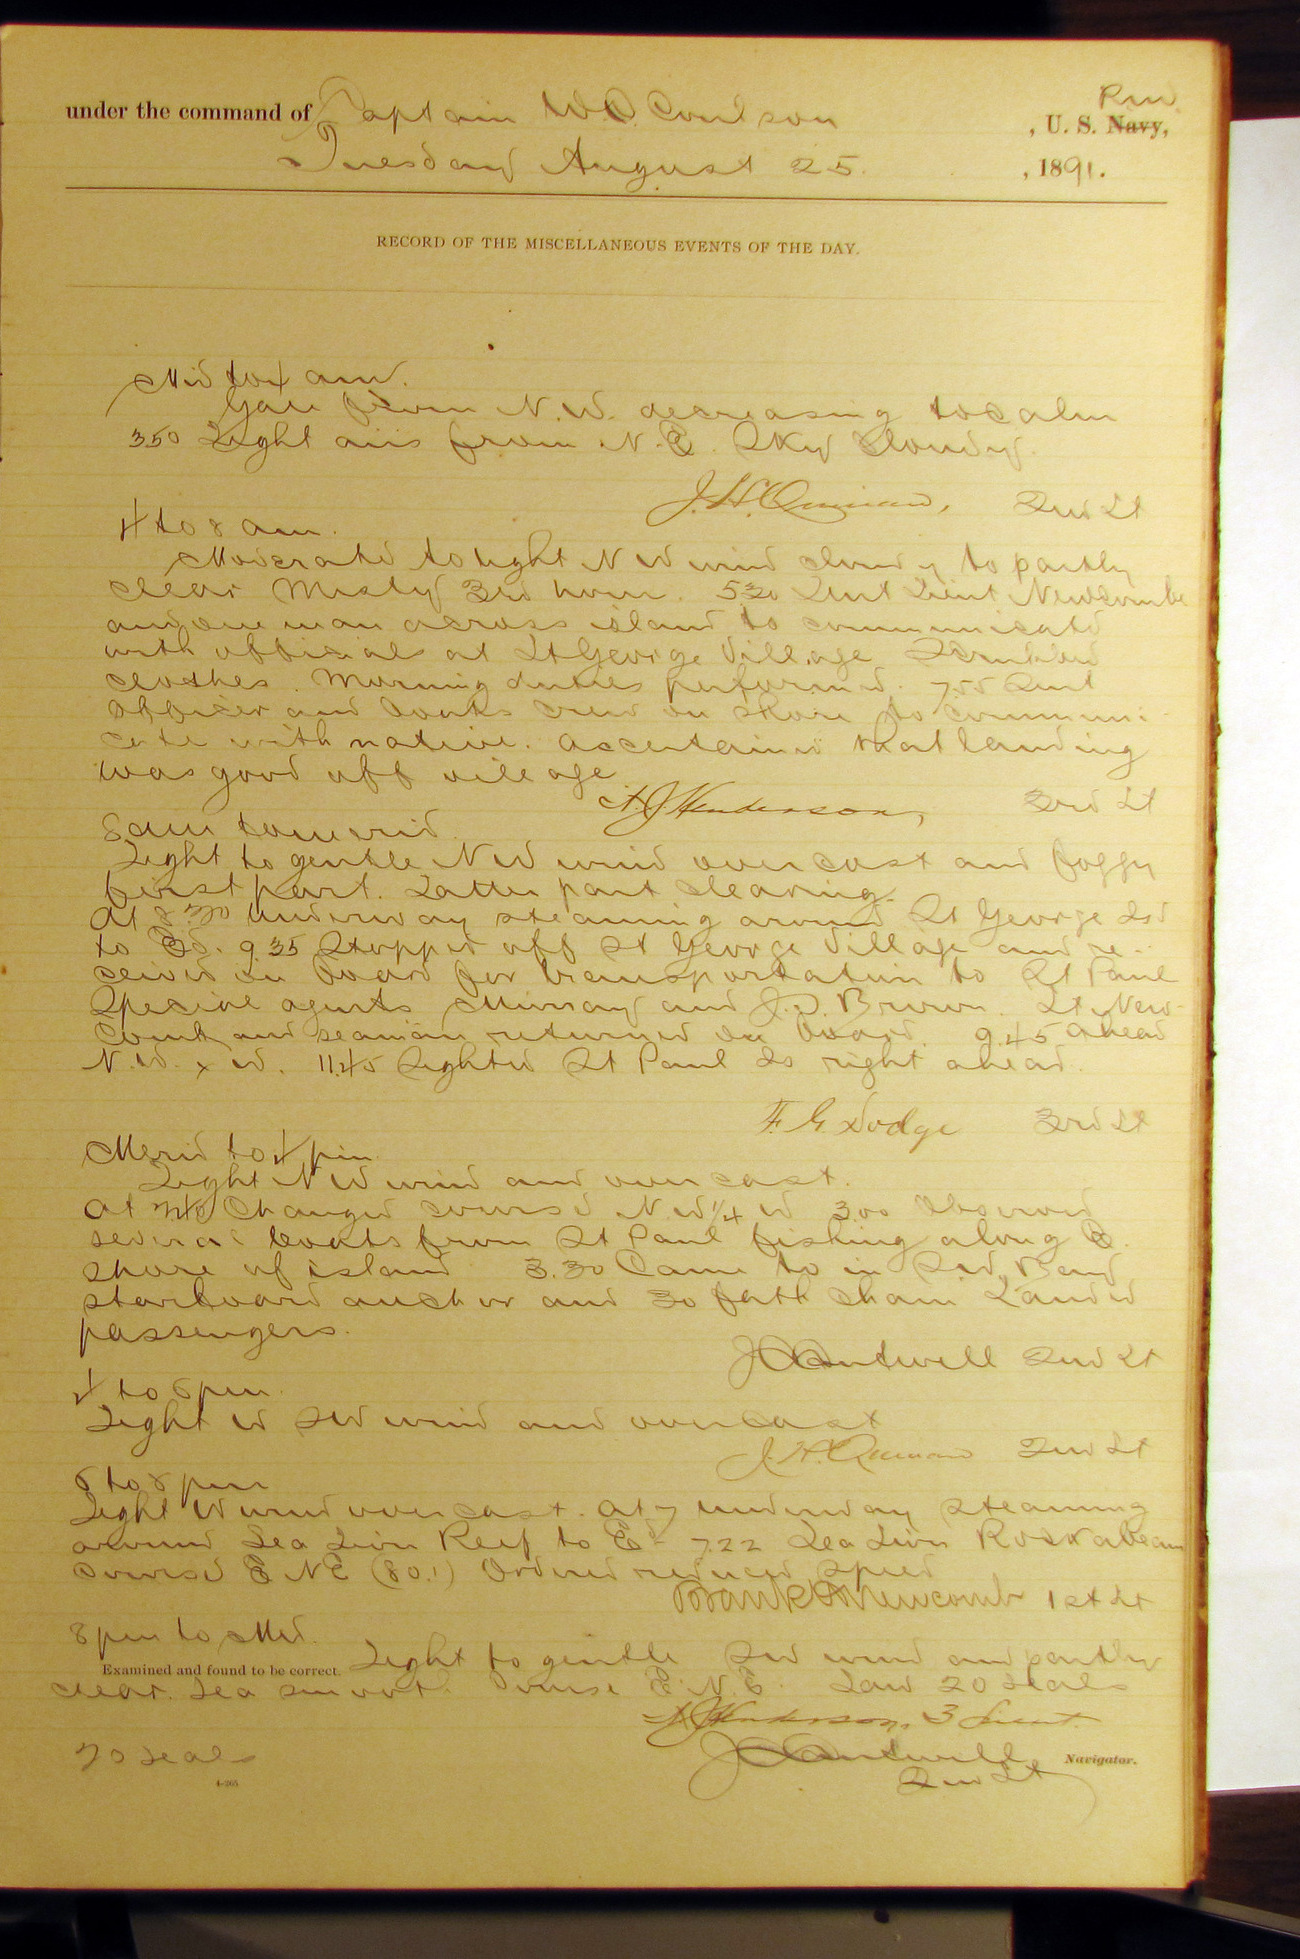 under the command of Captain W. C. Coulson, U. S. Navy, R.M.
Tuesday August 25, 1891.
RECORD OF THE MISCELLANEOUS EVENTS OF THE DAY.
Mid to 4 am.
Gale from N. W. decreasing to calm
350 Light airs from N. E. Sky Cloudy.
J. H. Quinan, 2nd Lt
4 to 8 am.
Moderate to light N W wind cloudy to partly
clear Misty 3rd hour. 530 Sent Lieut Newcombe
and one man across island to communicate
with officials at St George Village Scrubbed
clothes. Morning duties performed. 755 Sent
officer and boats crew on shore to communi-
cate with native. ascertained that landing
was good off village
A. J. Henderson, 3rd Lt
8 am to merid.
Light to gentle N W wind overcast and foggy
first part. Latter part clearing.
At 8 30 underway steaming around St George Isd
to Ed. 9 35 Stopped off St George Village and re-
ceived on board for transportation to St Paul
Special agents Murray and J. D. Brown. Lt New-
comb and seaman returned on board. 9.45 ahead
N. W. x W. 11.45 Sighted St Paul Is right ahead.
F. G. Dodge 3rd Lt
Merid to 4 pm
Light N W wind and overcast.
At 240 Changed course N W 1/4 W 300 Observed
several boats from St Paul fishing along E.
shore of island 3.30 Came to in S.W. Bay
starboard anchor and 30 fath chain Landed
passengers.
J C Cantwell 2nd Lt
4 to 6 pm.
Light W SW wind and overcast
J. H. Quinan 2nd Lt
6 to 8 pm
Light W wind overcast. At 7 underway steaming
around Sea Lion Reef to Ed 7.22 Sea Lion Rock abeam
course E NE (80.1) Ordered reduced speed
Frank H Newcomb 1st Lt
8 pm to Mid.
Light to gentle SW wind and partly
Examined and found to be correct.
clear. Sea smooth. Course E. N. E. Saw 20 seals
A J Henderson, 3 Lieut.
20 seals
J C Cantwell
2nd Lt
Navigator.
4-265